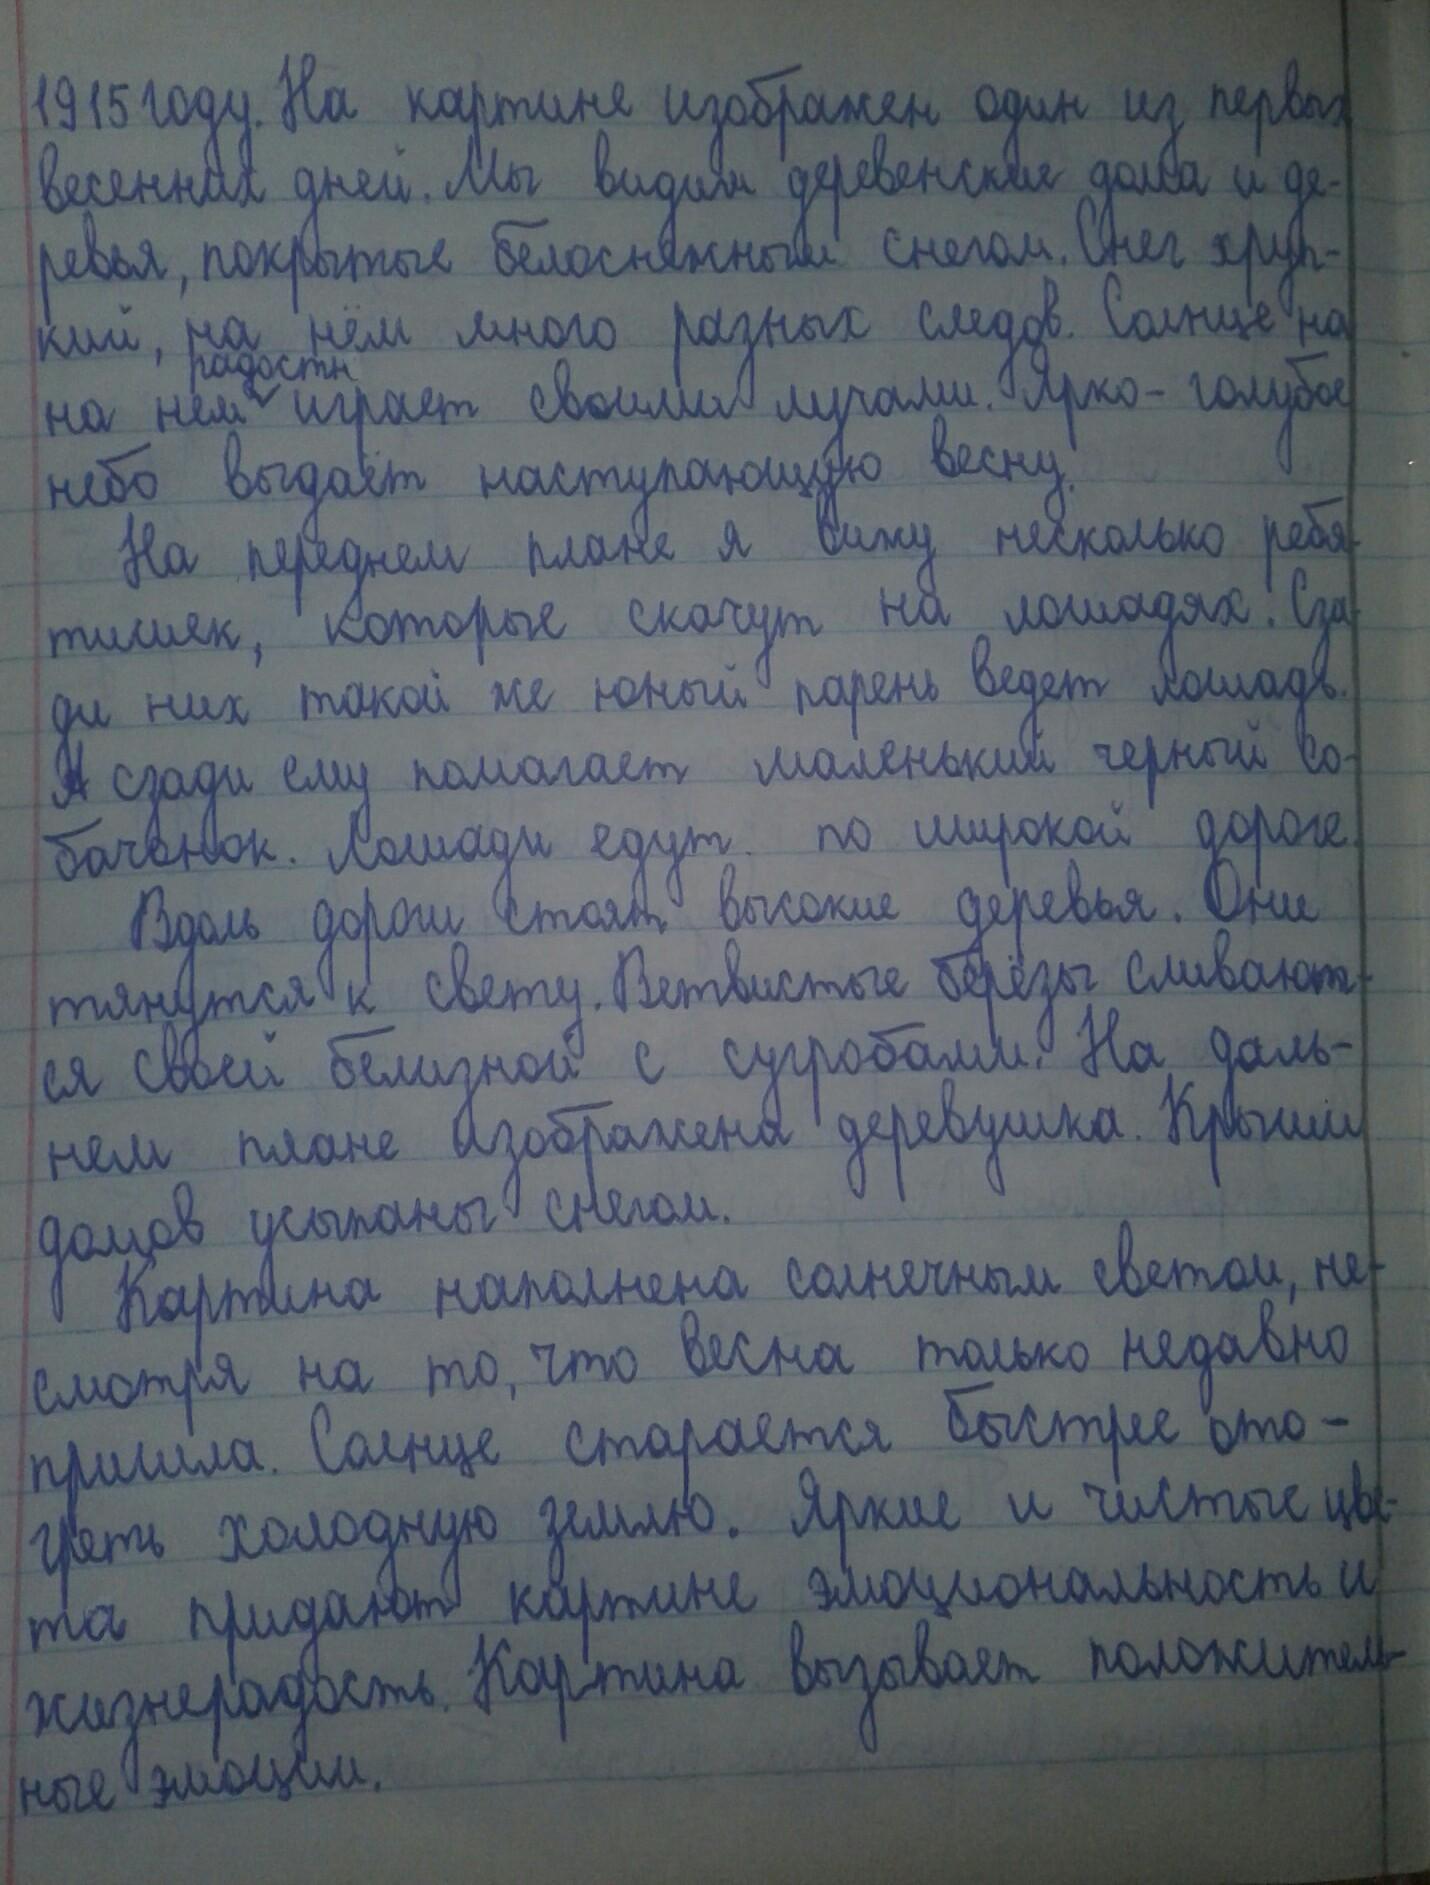 1915 году. На картине изображен один из первых
весенних дней. Мы видим деревенские дома и де-
ревья, покрытые белоснежным снегом. Снег хруп-
кий, на нём много разных следов. Солнце на
радостн
на нем играет своими лучами. Ярко-голубое
небо выдаёт наступающую весну.
На переднем плане я вижу несколько ребя-
тишек, которые скачут на лошадях. Сза-
ди них такой же юный парень ведет лошадь.
А сзади ему помогает маленький черный со-
баченок. Лошади едут по широкой дороге.
Вдоль дороги стоят высокие деревья. Они
тянутся к свету. Ветвистые берёзы сливают-
ся своей белизной с сугробами. На даль-
нем плане изображена деревушка. Крыши
домов усыпаны снегом.
Картина наполнена солнечным светом, не-
смотря на то, что весна только недавно
пришла. Солнце старается быстрее ото-
греть холодную землю. Яркие и чистые цве-
та придают картине эмоциональность и
жизнерадость. Картина вызывает положитель-
ные эмоции.